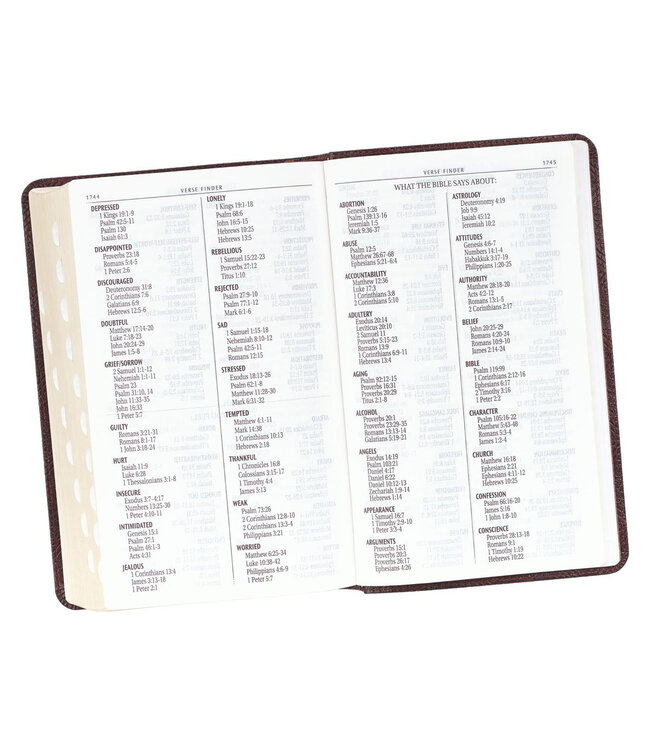 1744
VERSE FINDER
DEPRESSED
1 Kings 19:1-9
Psalm 42:5-11
Psalm 130
Isaiah 61:3
DISAPPOINTED
Proverbs 23:18
Romans 5:4-5
1 Peter 2:6
DISCOURAGED
Deuteronomy 31:8
2 Corinthians 7:6
Galatians 6:9
Hebrews 12:5-6
DOUBTFUL
Matthew 17:14-20
Luke 7:18-23
John 20:24-29
James 1:5-8
GRIEF/SORROW
2 Samuel 1:1-12
Nehemiah 1:1-11
Psalm 23
Psalm 31:10, 14
John 11:33-35
John 16:33
1 Peter 5:7
GUILTY
Romans 3:21-31
Romans 8:1-17
1 John 3:18-24
HURT
Isaiah 11:9
Luke 6:28
1 Thessalonians 3:1-8
INSECURE
Exodus 3:7-4:17
Numbers 13:25-30
1 Peter 4:10-11
INTIMIDATED
Genesis 15:1
Psalm 27:1
Psalm 46:1-3
Acts 4:31
JEALOUS
1 Corinthians 13:4
James 3:13-18
1 Peter 2:1
LONELY
1 Kings 19:1-18
Psalm 68:6
John 16:5-15
Hebrews 10:25
Hebrews 13:5
REBELLIOUS
1 Samuel 15:22-23
Proverbs 27:12
Titus 1:10
REJECTED
Psalm 27:9-10
Psalm 77:1-12
Mark 6:1-6
SAD
1 Samuel 1:15-18
Nehemiah 8:10-12
Psalm 42:5-11
Romans 12:15
STRESSED
Exodus 18:13-26
Psalm 62:1-8
Matthew 11:28-30
Mark 6:31-32
TEMPTED
Matthew 4:1-11
Mark 14:38
1 Corinthians 10:13
Hebrews 2:18
THANKFUL
1 Chronicles 16:8
Colossians 3:15-17
1 Timothy 4:4
James 5:13
WEAK
Psalm 73:26
2 Corinthians 12:8-10
2 Corinthians 13:3-4
Philippians 3:21
WORRIED
Matthew 6:25-34
Luke 10:38-42
Philippians 4:6-9
1 Peter 5:7
VERSE FINDER
1745
WHAT THE BIBLE SAYS ABOUT:
ABORTION
Genesis 1:26
Psalm 139:13-16
Jeremiah 1:5
Mark 9:36-37
ABUSE
Psalm 12:5
Matthew 26:67-68
Ephesians 5:21-6:4
ACCOUNTABILITY
Matthew 12:36
Luke 17:3
1 Corinthians 3:8
2 Corinthians 5:10
ADULTERY
Exodus 20:14
Leviticus 20:10
2 Samuel 11
Proverbs 5:15-23
Romans 13:9
1 Corinthians 6:9-11
Hebrews 13:4
AGING
Psalm 92:12-15
Psalm 16:31
Proverbs 20:29
Titus 2:1-8
ALCOHOL
Proverbs 20:1
Proverbs 23:29-35
Romans 13:13-14
Galatians 5:19-21
ANGELS
Exodus 14:19
Psalm 103:21
Daniel 4:17
Daniel 6:22
Daniel 10:12-13
Zechariah 1:9-14
Hebrews 1:14
APPEARANCE
1 Samuel 16:7
1 Timothy 2:9-10
1 Peter 3:3-4
ARGUMENTS
Proverbs 15:1
Proverbs 20:3
Proverbs 26:17
Ephesians 4:26
ASTROLOGY
Deuteronomy 4:19
Job 9:9
Isaiah 45:12
Jeremiah 10:2
ATTITUDES
Genesis 4:6-7
Numbers 14:1-4
Habakkuk 3:17-19
Philippians 1:20-25
AUTHORITY
Matthew 28:18-20
Acts 4:2-12
Romans 13:1-5
2 Corinthians 2:17
BELIEF
John 20:25-29
Romans 4:20-24
Romans 10:9-10
James 2:14-24
BIBLE
Psalm 119:99
1 Corinthians 2:12-16
Ephesians 6:17
2 Timothy 3:16
1 Peter 2:2
CHARACTER
Psalm 105:16-22
Matthew 5:43-48
Romans 5:3-4
James 1:2-4
CHURCH
Matthew 16:18
Ephesians 2:21
Ephesians 4:11-12
Hebrews 10:25
CONFESSION
Psalm 66:16-20
James 5:16
1 John 1:8-10
CONSCIENCE
Proverbs 28:13-18
Romans 9:1
1 Timothy 1:19
Hebrews 10:22